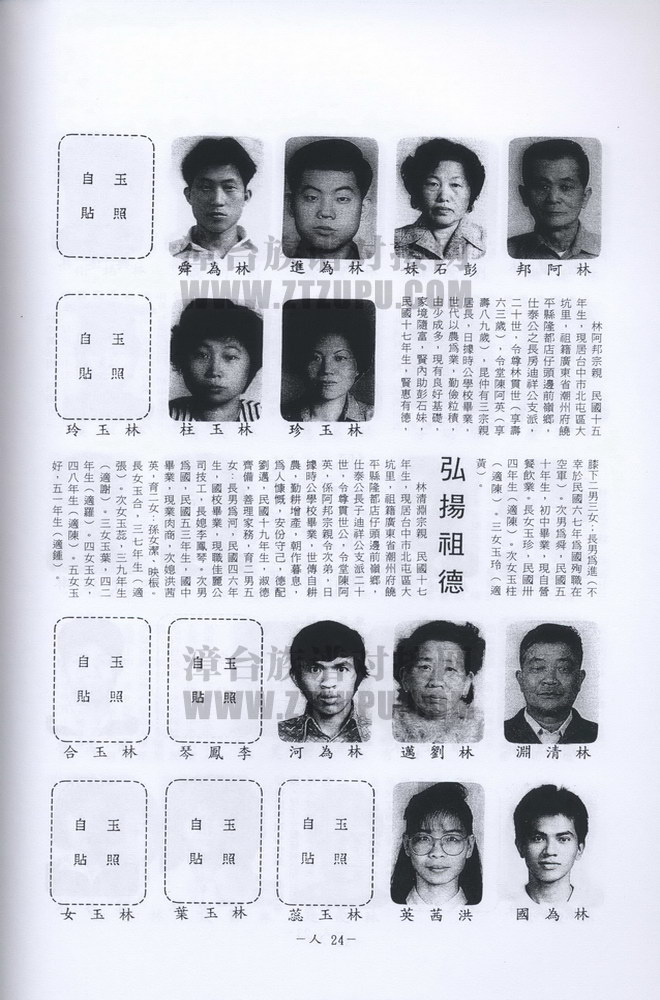 玉照自貼
林為舜
林為進
彭石妹
林阿邦
玉照自貼
林玉玲
林玉柱
林玉珍
林阿邦宗親　民國十五
年生，現居台中市北屯區大
坑里，祖籍廣東省潮州府饒
平縣隆都店仔頭邊前嶺鄉，
仕泰公之長房迪祥公支派，
二十世，令尊林貫世（享壽
六三歲），令堂陳阿英（享
壽八九歲），昆仲有三宗親
居長，日據時公學校畢業，
世代以農為業，勤儉粒積，
由少成多，現有良好基礎，
家境隨富，賢內助彭石妹，
民國十七年生，賢惠有德，
膝下二男三女：長男為進（不
幸於民國六七年為國殉職在
空軍）。次男為舜，民國五
十年生，初中畢業，現自營
餐飲業。長女玉珍，民國卅
四年生（適陳）。次女玉柱
（適陳）。三女玉玲（適
黃）。
弘揚祖德
林清淵宗親　民國十七
年生，現居台中市北屯區大
坑里，祖籍廣東省潮州府饒
平縣隆都店仔頭邊前嶺鄉，
仕泰公長子迪祥公支派二十
世，令尊貫世公，令堂陳阿
英，係阿邦宗親令次弟，日
據時公學校畢業，世傳自耕
農，勤耕增產，朝作暮息，
為人慷慨，安份守己，德配
劉邁，民國十九年生，淑德
齊備，善理家務，育二男五
女：長男為河，民國四六年
生，國校畢業，現職佳麗公
司技工，長媳李鳳琴。次男
為國，民國五三年生，國中
畢業，現業肉商，次媳洪茜
英，育二女，孫女潔、映振。
長女玉合，三七年生（適
張）。次女玉蕊，三九年生
（適謝）。三女玉葉，四二
年生（適羅）。四女玉女，
四八年生（適陳）。五女玉
好，五一年生（適鍾）。
玉照自貼
林玉合
玉照自貼
李鳳琴
林為河
林劉邁
林清淵
玉照自貼
林玉女
玉照自貼
林玉葉
玉照自貼
林玉蕊
洪茜英
林為國
－人 24－
漳台族谱对接网
WWW.ZTZUPU.COM
漳台族谱对接网
WWW.ZTZUPU.COM